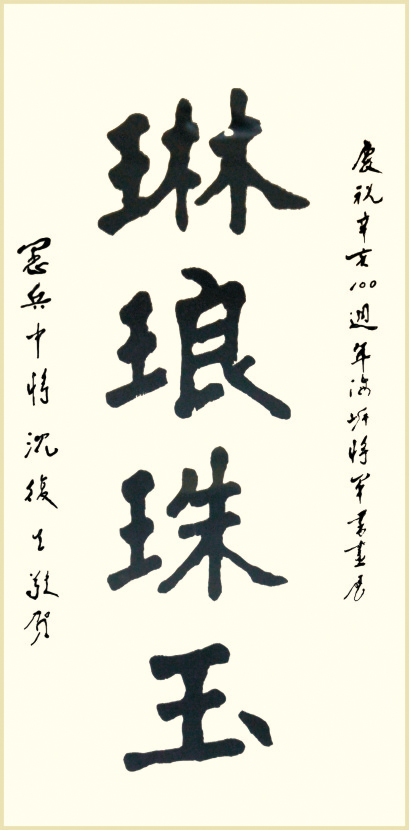 慶祝辛亥100週年海峡將軍書畫展
琳琅珠玉
憲兵中將沈復生敬賀